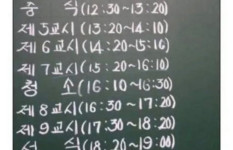 중 식(12:30~13:20)
제5교시(13:20~14:10)
제6교시(14:20~15:10)
제7교시(15:20~16:10)
청 소(16:10~16:30)
제8교시(16:30~17:20)
제9교시(17:30~18:20)
석 식(18:20~19:00)